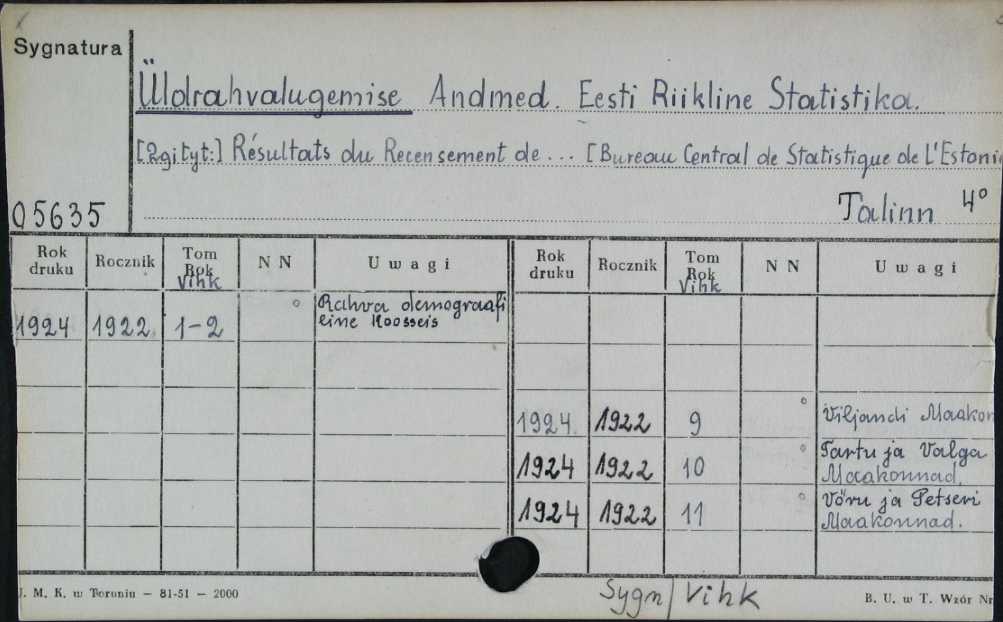 Sygnatura
Üldrahvalugemise Andmed. Eesti Riikline Statistika.
[2gi tyt:] Résultats du Recensement de... [Bureau Central de Statistique de L'Estonie
05635
Talinn 4°
Rok druku
Rocznik
Tom Rok Vihk
N N
Uwagi
Rok druku
Rocznik
Tom Rok Vihk
N N
Uwagi
1924 1922 1-2 ° Rahva demograafi
line Koosseis
1924. 1922 9 ° Viljandi Maakon
1924 1922 10 ° Tartu ja Valga
Maakonnad.
1924 1922 11 ° Võru ja Petseri
Maakonnad.
J. M. K. w Toruniu — 81-51 — 2000
Sygn/Vihk
B. U. w T. Wzór Nr